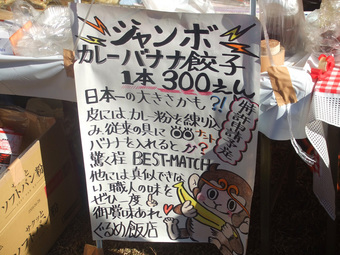 ジャンボ
カレーバナナ餃子
1本 300えん
日本一の大きさかも?!
皮にはカレー粉を練り込
み、従来の具に
バナナを入れるとか?
驚く程 BEST-MATCH
他には真似できな
い職人の味を
ぜひ一度!
御賞味あれ
ぐるめ飯店
特許申請予定
ソフトパン粉